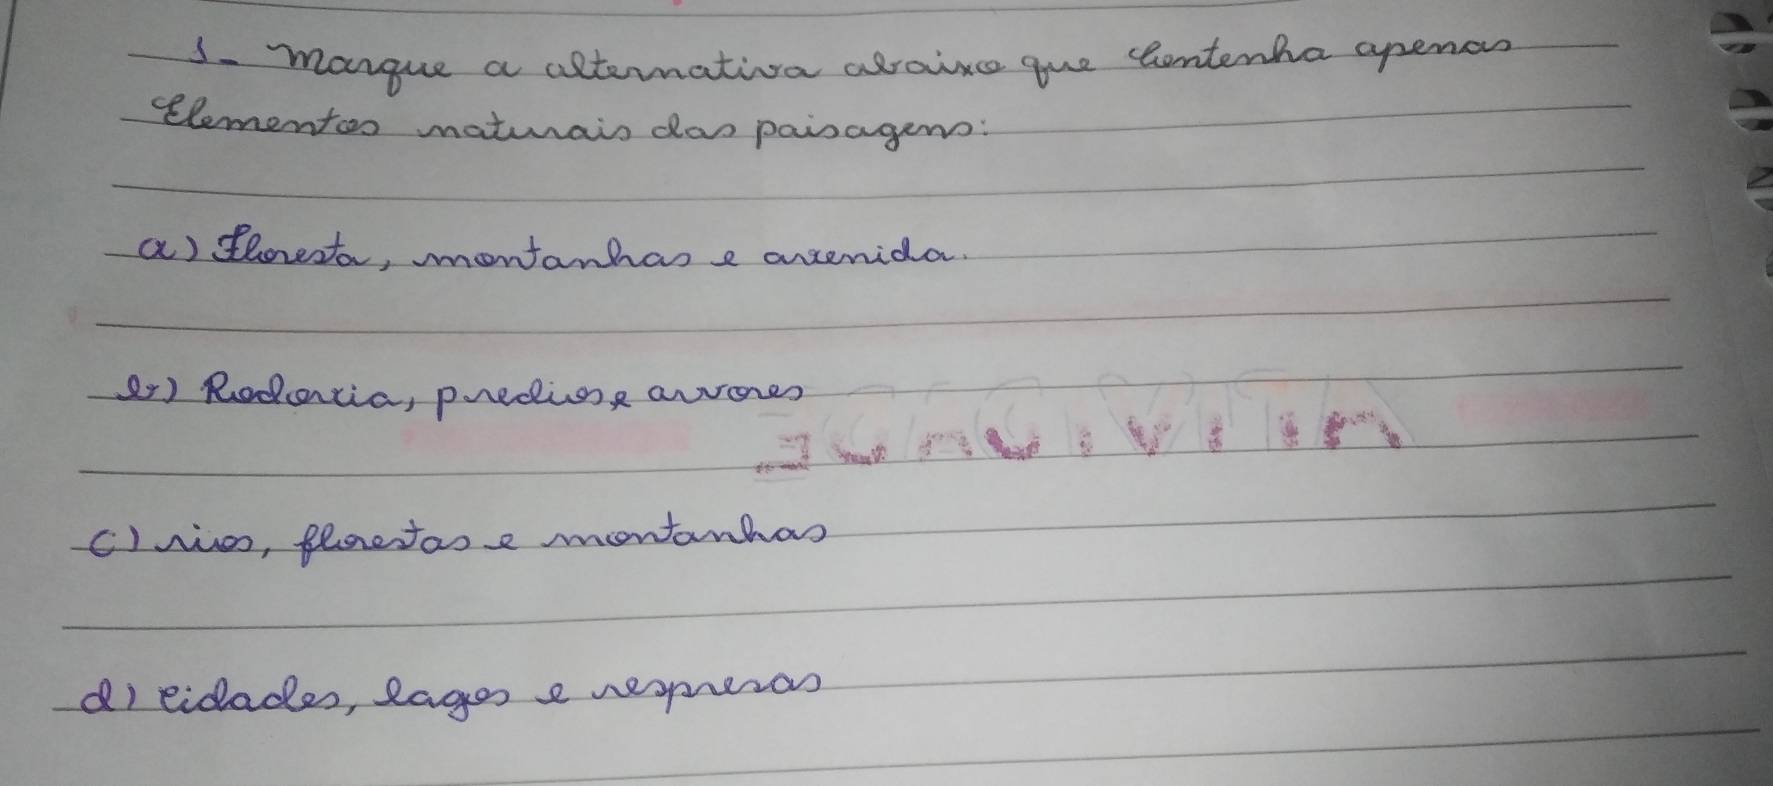 1- Marque a alternativa abaixo que contenha apenas
Elementos naturais das paisagens:
a) Floresta, montanhas e avenida.
b) Rodovia, predios e arvores
c) rios, florestas e montanhas
d) cidades, lagos e represas